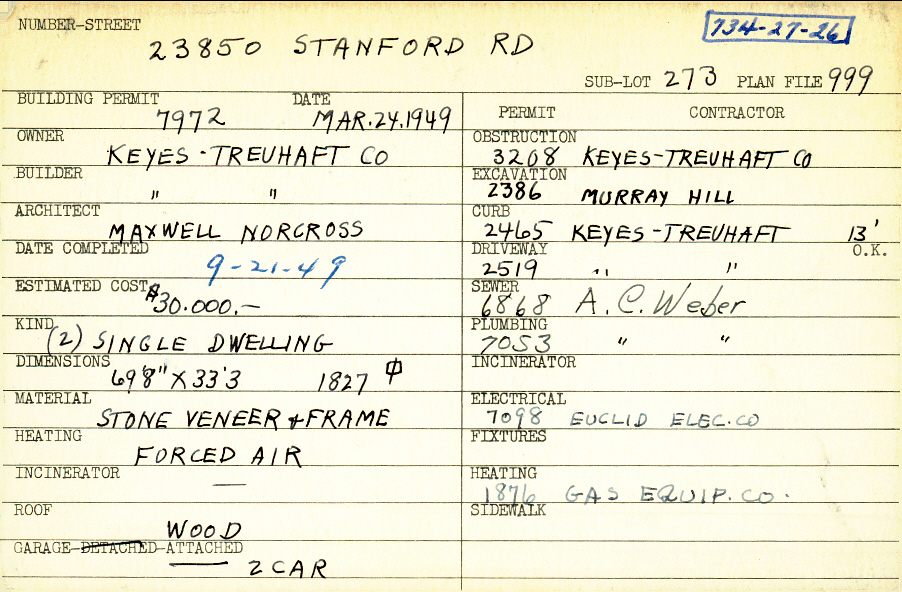 NUMBER-STREET
23850 STANFORD RD
734-27-26
SUB-LOT 273 PLAN FILE 999
BUILDING PERMIT DATE
7972 MAR.24.1949
OWNER
KEYES-TREUHAFT CO
BUILDER
" "
ARCHITECT
MAXWELL NORCROSS
DATE COMPLETED
9-21-49
ESTIMATED COST
$30.000.-
KIND
(2) SINGLE DWELLING
DIMENSIONS
69'8" X 33'3 1827 ⌽
MATERIAL
STONE VENEER & FRAME
HEATING
FORCED AIR
INCINERATOR
—
ROOF
WOOD
GARAGE-DETACHED-ATTACHED
2 CAR
PERMIT CONTRACTOR
OBSTRUCTION
3208 KEYES-TREUHAFT CO
EXCAVATION
2386 MURRAY HILL
CURB
2465 KEYES-TREUHAFT 13'
O.K.
DRIVEWAY
2519 " "
SEWER
6868 A.C. Weber
PLUMBING
7053 " "
INCINERATOR
ELECTRICAL
7098 EUCLID ELEC.CO
FIXTURES
HEATING
1876 GAS EQUIP. CO.
SIDEWALK